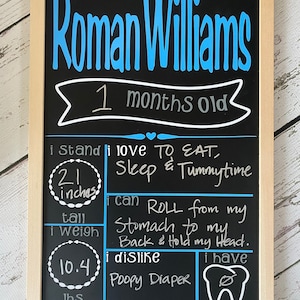 Roman Williams
1 months old
i stand
21
inches
tall
i love TO EAT,
Sleep & Tummytime
i can ROLL from my
Stomach to my
Back & Hold my Head.
i weigh
10.4
lbs
i dislike
Poopy Diaper
i have
0